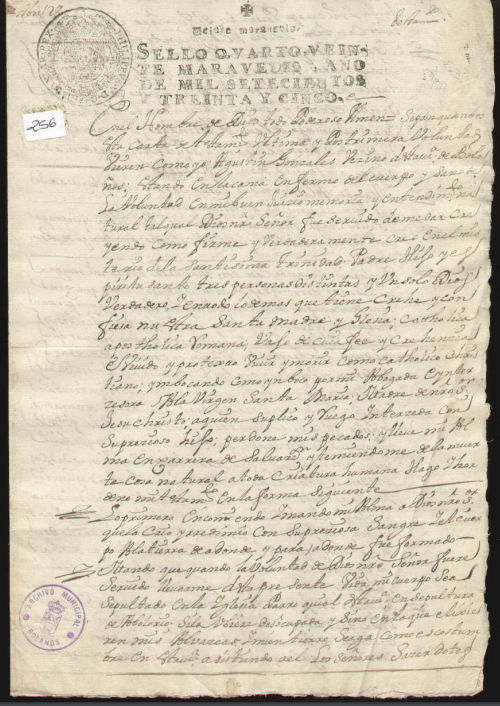 Veinte maravedis.
SELLO QVARTO, VEIN-
TE MARAVEDIS, AÑO
DE MIL SETECIENTOS
Y TREINTA Y CINCO.
256
En el Nombre de Dios todo Poderoso Amen Sepan quantos
esta Carta de Ultima y Postrimera Voluntad
Vieren Como yo Agustin Gonzales Vezino de la de Bola
ños; estando En la cama Enfermo del cuerpo y sano de
La Voluntad En mi buen Juizio memoria y entendim
tural tal qual Dios nro Señor fue seruido de me dar Cre
yendo Como firme y Verdaderamente Creo En el mis
terio de la Santissima Trinidad Padre Hijo y es
piritu santo tres personas distintas y Un solo Dios
Verdadero, y en todo lo demas que tiene Crehe y con
fiesa nuestra Santa madre yglesia Catholica
apostholica Romana, de Cuia fee y Crehencia
e Viuido y protexto Viuir y morir Como catholico Chris
tiano; ymbocando Como ymboco por mi Abogada e ynter
zesora A la Virgen Santa Maria, Madre de nro
Jesu christo; a quien Suplico y Ruego Interzeda Con
Su prezioso hijo, perdone mis pecados; y lleue mi Al
ma En carrera de Saluaz y temiendome de la muer
te Cosa natural a toda Criatura humana Hago y hor
deno mi testam En la forma Siguiente
Lo primero Encomiendo y mando mi Alma a Dios nro
que la Crio y rredimio Con Su preziosa Sangre y el cuer
po A la tierra de a donde y para donde fue formado
y quando la Voluntad de Dios nro Señor fuere
Seruido lleuarme de esta presente Vida mi cuerpo Sea
Sepultado En la Iglesia Parroquial de En sepultura
de
ren mis Albazeas y mi entierro Se aga Como es costum
bre En asistiendo a el Los Señores Sazerdotes
ARCHIVO MUNICIPAL
BOLAÑOS